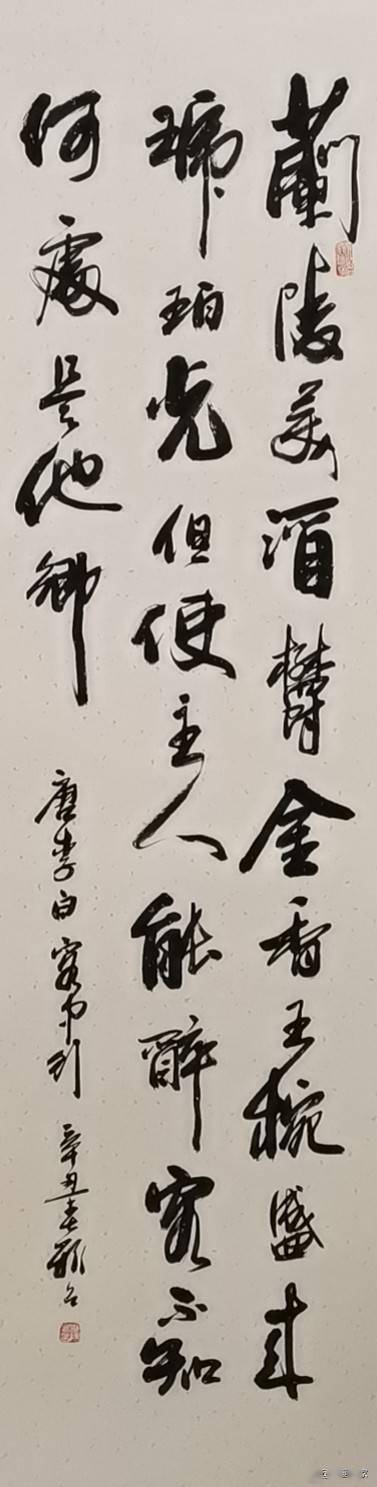 蘭陵美酒鬱金香玉椀盛来
琥珀光但使主人能醉客不知
何處是他鄉
唐李白客中行 辛丑春